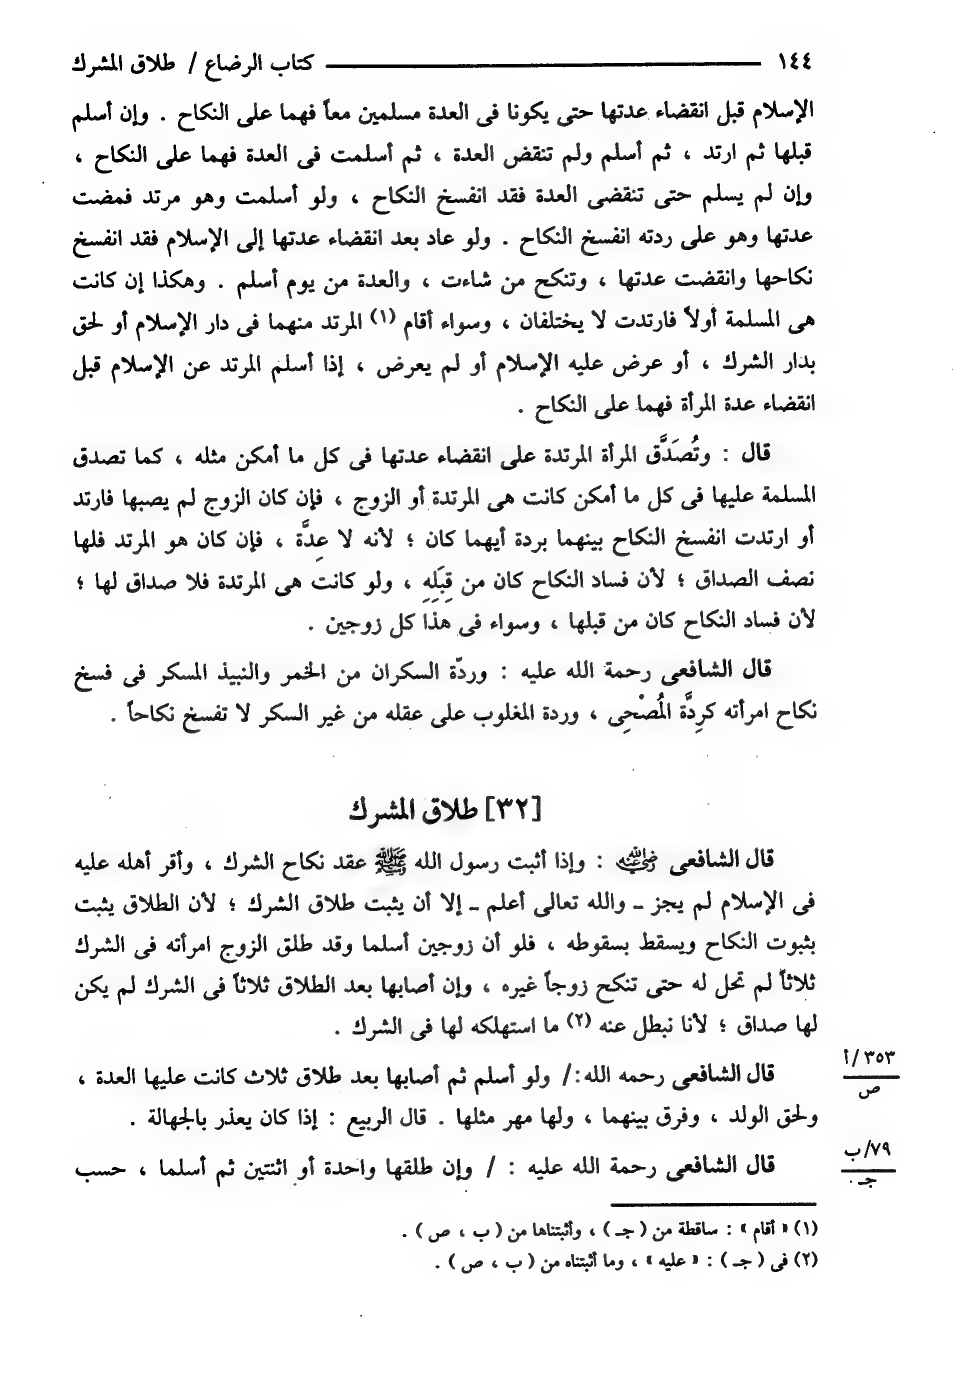 ١٤٤ كتاب الرضاع / طلاق المشرك
الإسلام قبل انقضاء عدتها حتى يكونا فى العدة مسلمين معاً فهما على النكاح . وإن أسلم
قبلها ثم ارتد ، ثم أسلم ولم تنقض العدة ، ثم أسلمت فى العدة فهما على النكاح ،
وإن لم يسلم حتى تنقضى العدة فقد انفسخ النكاح ، ولو أسلمت وهو مرتد فمضت
عدتها وهو على ردته انفسخ النكاح . ولو عاد بعد انقضاء عدتها إلى الإسلام فقد انفسخ
نكاحها وانقضت عدتها ، وتنكح من شاءت ، والعدة من يوم أسلم . وهكذا إن كانت
هى المسلمة أولاً فارتدت لا يختلفان ، وسواء أقام (١) المرتد منهما فى دار الإسلام أو لحق
بدار الشرك ، أو عرض عليه الإسلام أو لم يعرض ، إذا أسلم المرتد عن الإسلام قبل
انقضاء عدة المرأة فهما على النكاح .
قال : وتُصَدَّق المرأة المرتدة على انقضاء عدتها فى كل ما أمكن مثله ، كما تصدق
المسلمة عليها فى كل ما أمكن كانت هى المرتدة أو الزوج ، فإن كان الزوج لم يصبها فارتد
أو ارتدت انفسخ النكاح بينهما بردة أيهما كان ؛ لأنه لا عِدَّة ، فإن كان هو المرتد فلها
نصف الصداق ؛ لأن فساد النكاح كان من قِبَلِهِ ، ولو كانت هى المرتدة فلا صداق لها ؛
لأن فساد النكاح كان من قبلها ، وسواء فى هذا كل زوجين .
قال الشافعى رحمة الله عليه : وردّة السكران من الخمر والنبيذ المسكر فى فسخ
نكاح امرأته كرِدَّة المُصْحِى ، وردة المغلوب على عقله من غير السكر لا تفسخ نكاحاً .
[٣٢] طلاق المشرك
قال الشافعى رضي الله عنه : وإذا أثبت رسول الله ﷺ عقد نكاح الشرك ، وأقر أهله عليه
فى الإسلام لم يجز ـ والله تعالى أعلم ـ إلا أن يثبت طلاق الشرك ؛ لأن الطلاق يثبت
بثبوت النكاح ويسقط بسقوطه ، فلو أن زوجين أسلما وقد طلق الزوج امرأته فى الشرك
ثلاثاً لم تحل له حتى تنكح زوجاً غيره ، وإن أصابها بعد الطلاق ثلاثاً فى الشرك لم يكن
لها صداق ؛ لأنا نبطل عنه (٢) ما استهلكه لها فى الشرك .
قال الشافعى رحمه الله:/ ولو أسلم ثم أصابها بعد طلاق ثلاث كانت عليها العدة ،
٣٥٣/أ
ص
ولحق الولد ، وفرق بينهما ، ولها مهر مثلها . قال الربيع : إذا كان يعذر بالجهالة .
قال الشافعى رحمة الله عليه : / وإن طلقها واحدة أو اثنتين ثم أسلما ، حسب
٧٩/ب
جـ
(١) « أقام » : ساقطة من ( جـ ) ، وأثبتناها من ( ب ، ص ) .
(٢) فى ( جـ ) : « عليه » ، وما أثبتناه من ( ب ، ص ) .